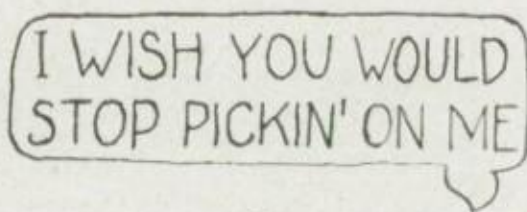 I WISH YOU WOULD
STOP PICKIN' ON ME